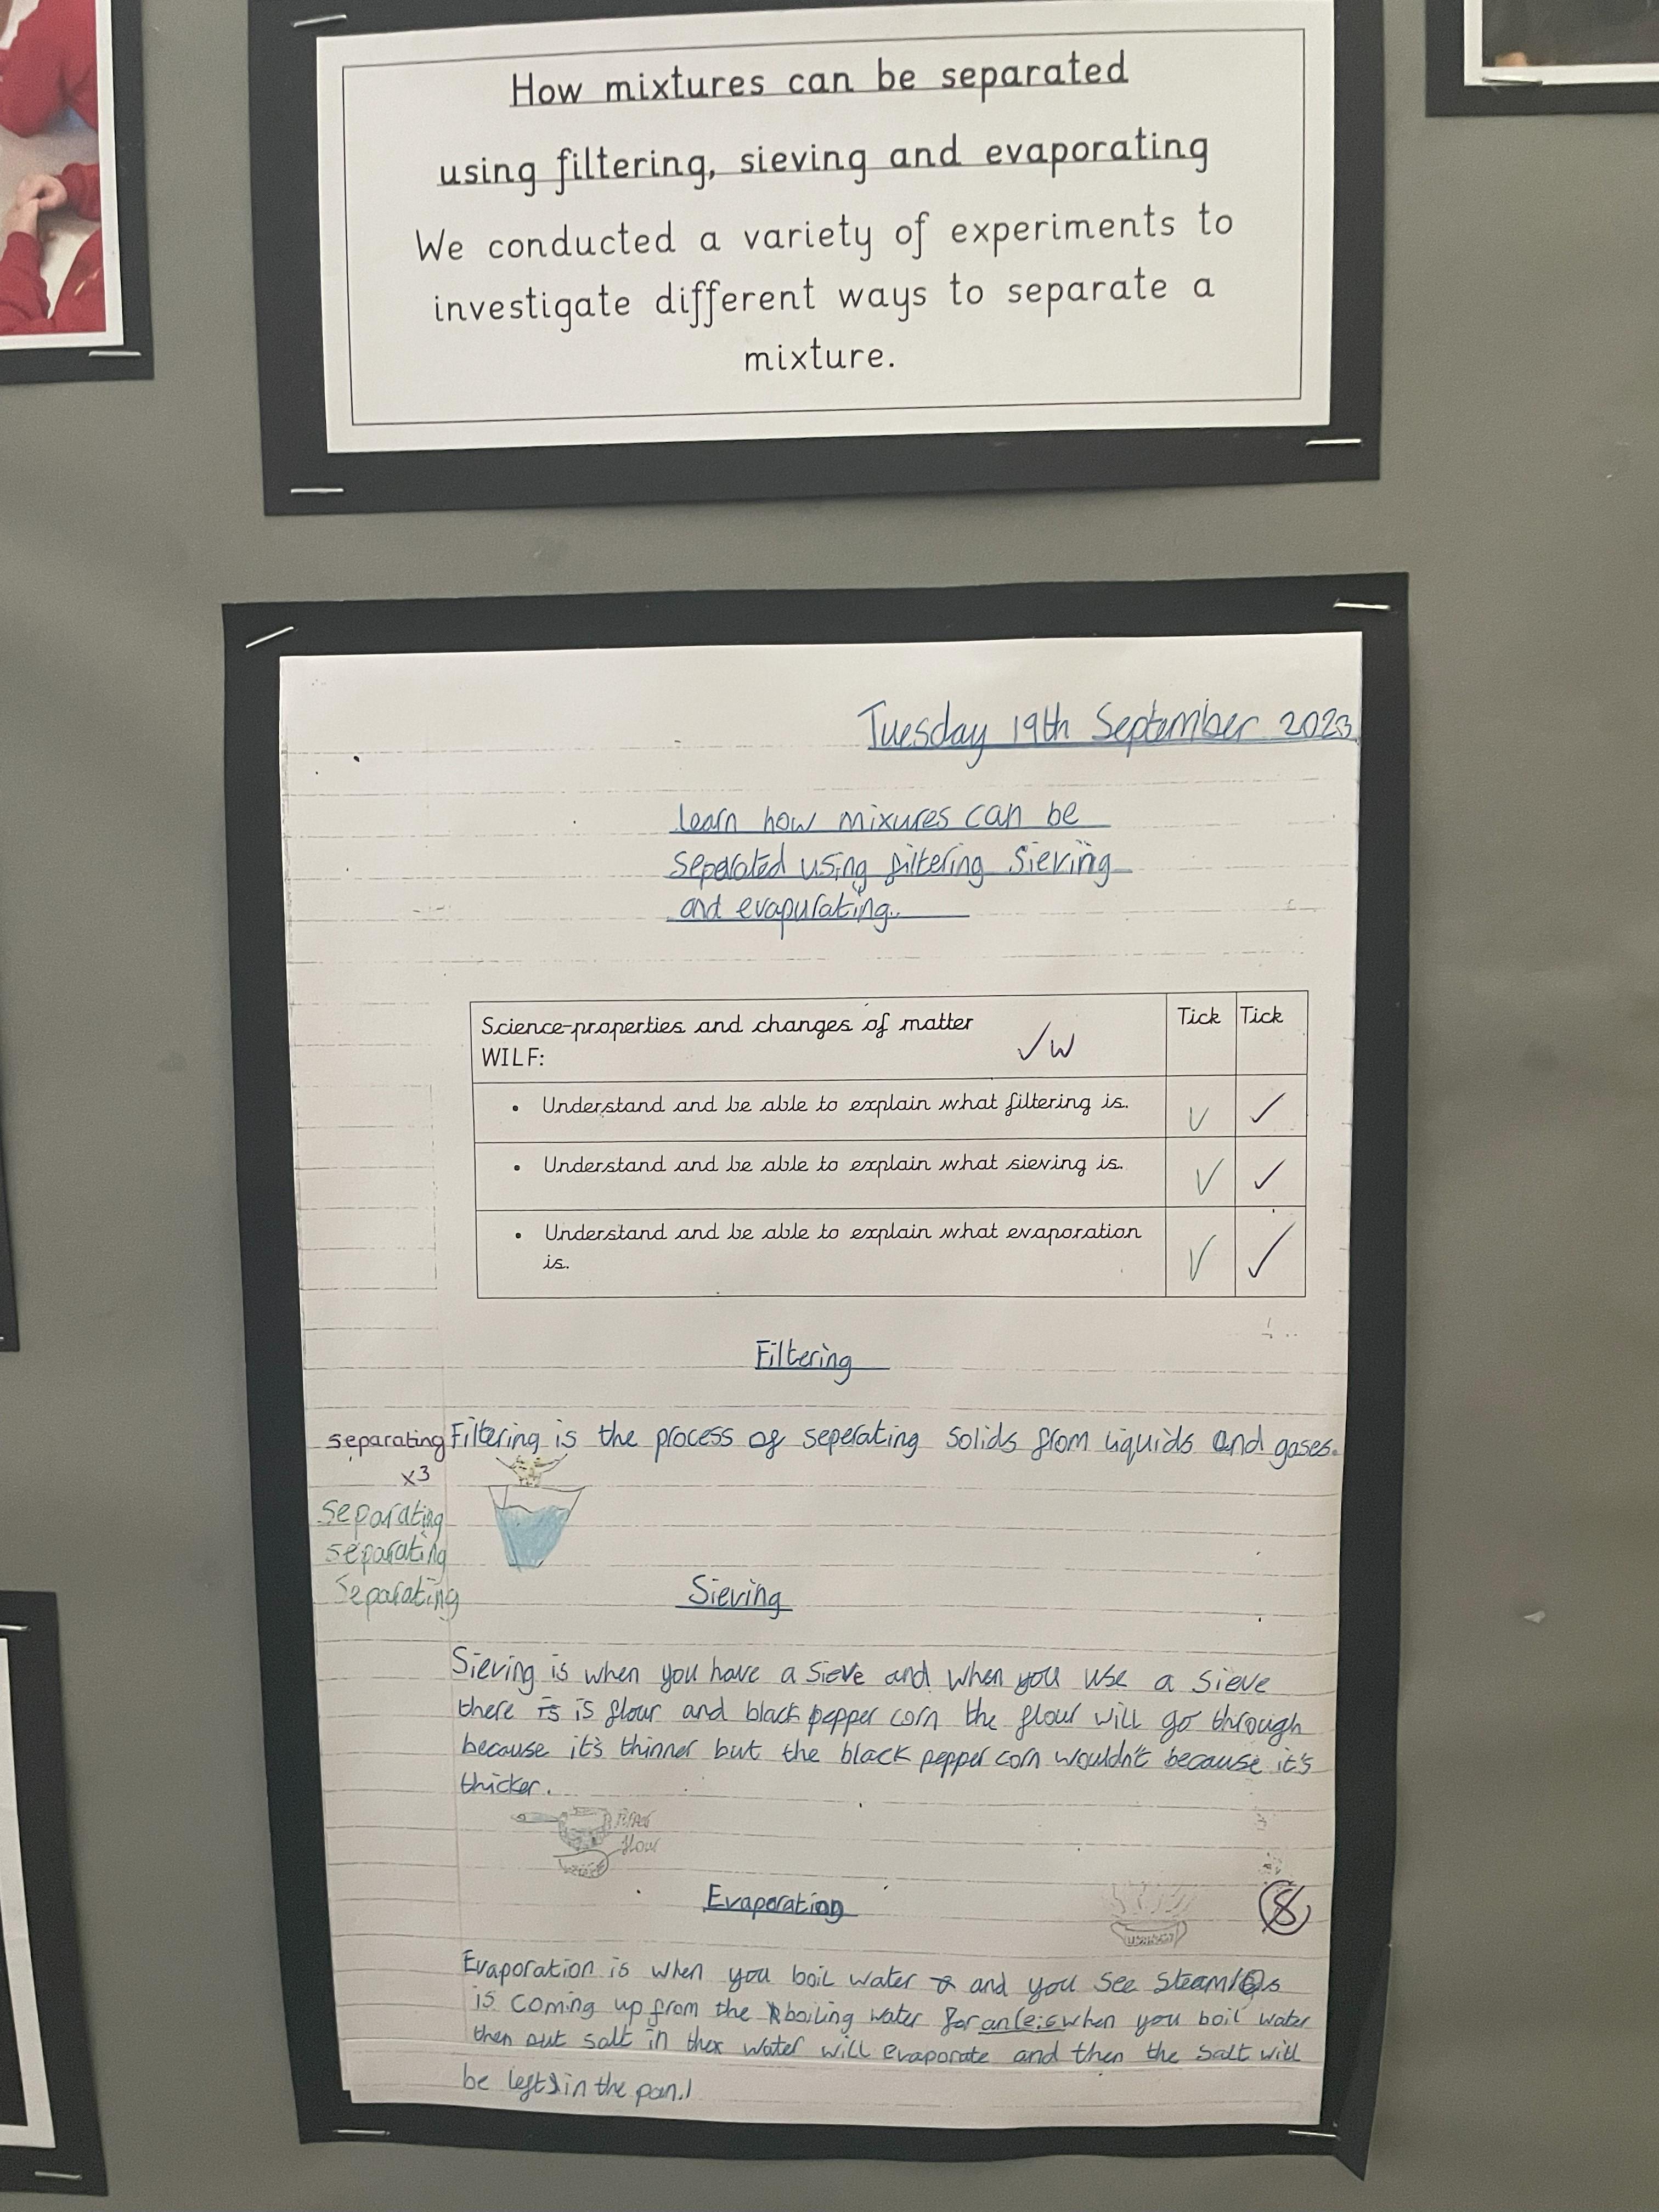 How mixtures can be separated
using filtering, sieving and evaporating
We conducted a variety of experiments to
investigate different ways to separate a
mixture.
Tuesday 19th September 2023
Learn how mixures can be
separated using filtering sieving
and evapurating.
Science-properties and changes of matter
WILF:
✓W
Tick
Tick
• Understand and be able to explain what filtering is.
✓
✓
• Understand and be able to explain what sieving is.
✓
✓
• Understand and be able to explain what evaporation
is.
✓
✓
Filtering
separating
Filtering is the process of seperating solids from liquids and gases.
x3
separating
separating
separating
Sieving
Sieving is when you have a sieve and when you use a sieve
there is is flour and black pepper corn the flour will go through
because it's thinner but the black pepper corn wouldn't because it's
thicker.
flour
Evaporating
8
Evaporation is when you boil water and you see steam
is coming up from the boiling water for when you boil water
then put salt in the water will evaporate and then the salt will
be left in the pan.